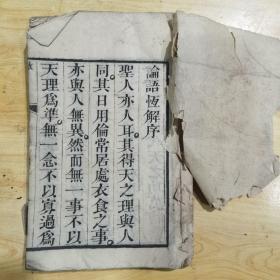 論語恆解序
聖人亦人耳其得天之理與人
同其日用倫常居處衣食之事
亦與人無異然而無一事不以
天理爲準無一念不以寡過爲